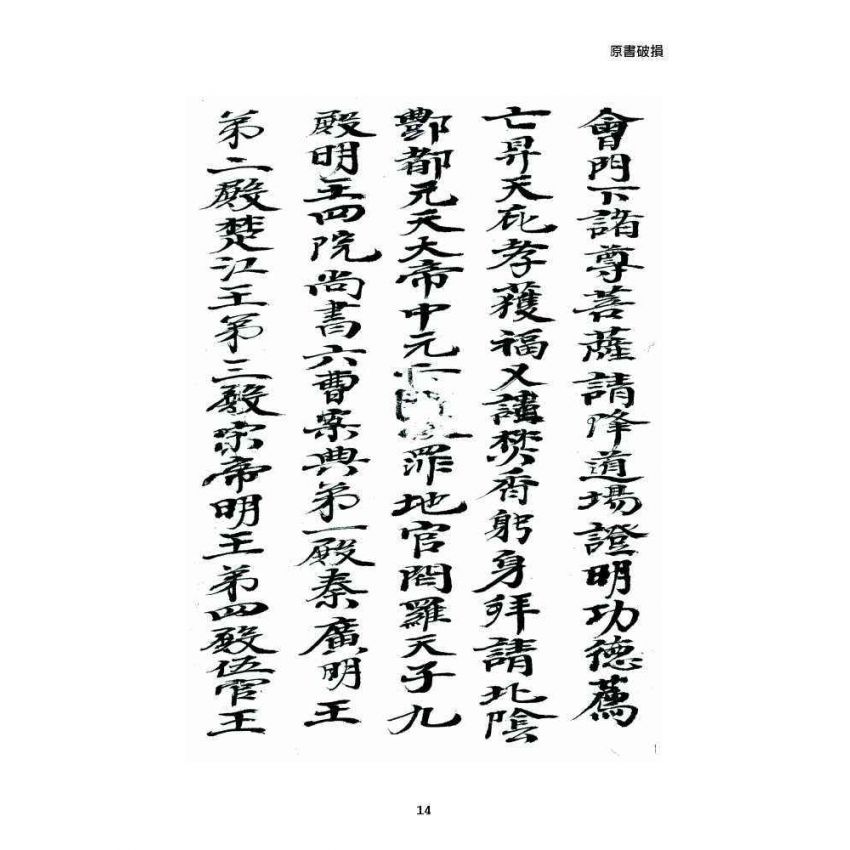 原書破損
會門下諸尊菩薩請降道場證明功德薦
亡昇天庇孝獲福又請焚香躬身拜請北陰
酆都元天大帝中元二罪地官閻羅天子九
殿明王四院尚書六曹案典第一殿秦廣明王
第二殿楚江王第三殿宗帝明王第四殿伍官王
14